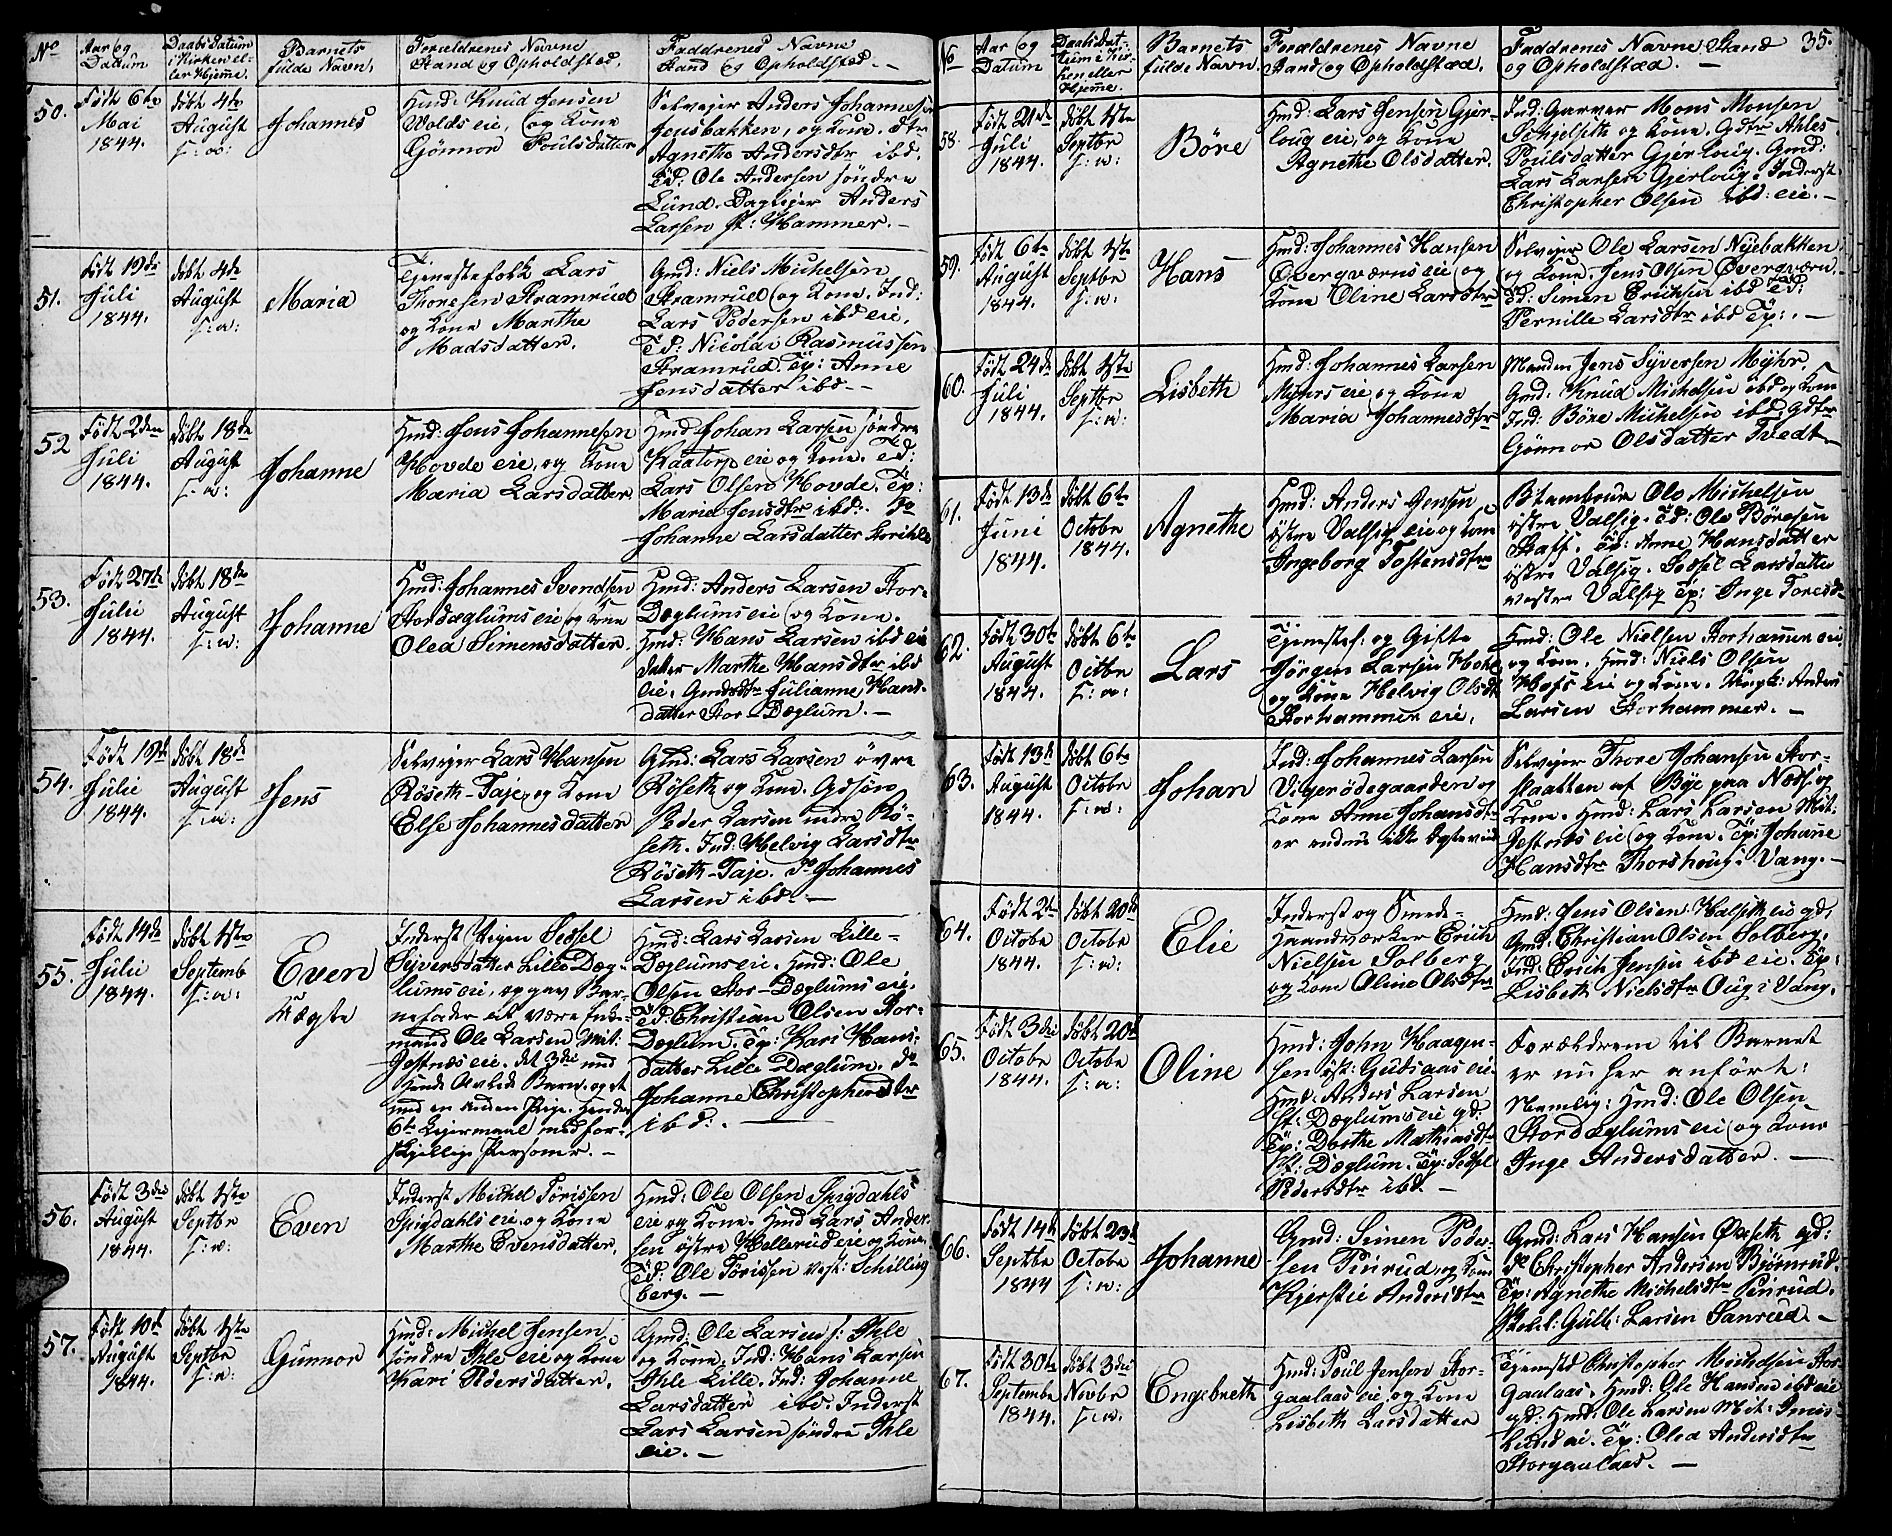 No
Aar og
Datum
Daabsdatum
i Kirken el-
ler Hjeme.
Barnets
fulde Navn.
Forældrenes Navne
Stand og Opholdsted.
Faddrenes Navne
Stand og Opholdsted. —
50.
Født 6te
Mai
1844.
døbt 4de
August
s: a:
Johannes
Hmd: Knud Jensen
Volds eie, og Kone
Gønnor Poulsdatter
Selveier Anders Johannesen
Jensbakken, og Kone. dtr
Agnethe Andersdtr ibd.
Td: Ole Andersen søndre
Lund. Daglejer Anders
Larsen St: Hammer. —
51.
Født 19de
Juli
1844.
døbt 4de
August
s: a:
Maria
Tjenestefolk Lars
Thoresen Stramrud
og Kone Marthe
Madsdatter.
Gmd: Niels Michelsen
Stramrud og Kone. Ind:
Lars Pedersen ibd eie.
Td: Nicolai Rasmussen
Stramrud. Tp: Anne
Jensdatter ibd. —
52
Født 2den
Juli
1844.
døbt 18de
August
s: a:
Johanne
Hmd: Jens Johannesen
Hovde eie, og Kone
Maria Larsdatter
Hmd Johan Larsen søndre
Kaatorp eie og Kone. Td:
Lars Olsen Hovde. Tp:
Maria Jensdtr ibd:
Johanne Larsdatter
53.
Født 27de
Julii
1844.
døbt 18de
August
s: a:
Johanne
Hmd: Johannes Svendsen
Stordæglums eie og Kone
Olea Simensdatter.
Hmd: Anders Larsen Stor-
Dæglums eie og Kone.
Hmd: Hans Larsen ibd eie
Marthe Hansdtr ibd
eie. Julianne Hans-
datter Stor-Dæglum. —
54.
Født 19de
Julii
1844.
døbt 18de
August
s: a:
Jens
Selveier Lars Hansen
Røseth-Taje, og Kone
Else Johannesdatter
Gmd: Lars Larsen øvre
Røseth og Kone. Gdsøn
Peder Larsen nedre Rø-
seth. Ind: Helvig Larsdtr
Røseth-Taje. Johannes
Larsen ibd. —
55.
Født 14de
Julii
1844.
døbt 1ste
Septemb
s: a:
Even
Uægte
Inderst Pigen Sedsel
Sjversdatter Lille Dæg-
lums eie, opgav Bar-
nefader at være Inde-
mand Ole Larsen Mit-
Gestnæs eie. det 3die med
hende Avlede Barn, og et
med en anden Pige. Hendes
6te Leiermaal med for-
skjellige Personer. —
Hmd: Lars Larsen Lille-
Dæglums eie. Hmd: Ole
Olsen Stor-Dæglums eie.
Td: Christian Olsen Stor-
Dæglum. Tp: Kari Hans-
datter Lille Dæglum. do
Johanne Christophersdtr
ibd: . —
56.
Født 3die
August
1844.
døbt 1ste
Septbr
s: a:
Even
Inderst Michel Tørissen
Spigdahls eie, og Kone
Marthe Evensdatter.
Hmd: Ole Olsen Spigdahls
eie og Kone. Hmd Lars Ander-
sen østre Hellerud eie og Kone.
Td: Ole Tørissen vest: Schilling
berg. —
57.
Født 10de
August
1844.
døbt 1ste
Septbr
s: a:
Gunnor
Hmd: Michel Jensen
søndre Ihle eie og Kone
Kari Pedersdatter.
Gmd: Ole Larsen s: Ihle
og Kone. Ind: Hans Larsen
Ihle Lille. Ind: Johanne
Larsdatter ibd. Inderst
Lars Larsen søndre Ihle
eie. —
No
Aar og
Datum
Daabsdat-
um i Kir-
ken eller
Hjeme.
Barnets
fulde Navn.
Forældrenes Navne
Stand og Opholdsted.
Faddrenes Navne Stand
og Opholdsted. —
35.
58.
Født 21de
Juli
1844.
døbt 1ste
Septbr
s: a:
Børe
Hmd: Lars Jensen Gjer-
loug eie, og Kone
Agnethe Olsdatter.
Ind: Garver Mons Monsen
Schjelseth og Kone. Gdtr Ahles
Poulsdatter Gjerloug. Gmd:
Lars Larsen Gjerloug. Inderst
Christopher Olsen ibd: eie. —
59.
Født 6te
August
1844.
døbt 1ste
Septbr
s: a:
Hans
Hmd: Johannes Hansen
Øvergværns eie og
Kone Oline Larsdtr
Selveier Ole Larsen Nyebakken
og Kone. Jens Olsen Øvergværn.
Td: Simen Erichsen ibd Td:
Pernille Larsdtr ibd Tp: . —
60.
Født 24de
Juli
1844.
døbt 1ste
Septbr
s: a:
Lisbeth
Hmd: Johannes Larsen
Myhrs eie, og Kone
Maria Johannesdtr
Manden Jens Syversen Myhr.
Gmd: Knud Michelsen ibd og Kone
Ind: Børe Michelsen ibd. Gdtr
Gønnor Olsdatter Tvedt —
61.
Født 13de
Juni
1844.
døbt 6te
Octobr
1844.
Agnethe
Hmd: Anders Jensen
østre Valsig eie og Kone
Ingeborg Tostensdtr
Bitambour Ole Michelsen
østre Valsig. Td: Ole Børesen
Staff. Tp: Anne Hansdatter
østre Valsig. Sedsel Larsdatter
vestre Valsig Tp: Inge Toresd-
62.
Født 30te
August
1844.
døbt 6te
Octbr
s: a:
Lars
Tjenestef: og Gifte
Jørgen Larsen
og Kone Helvig Olsdtr
Storhammer eie.
Hmd: Ole Nielsen Storhammer eie
og Kone. Hmd: Niels Olsen
Hofs eie og Kone. Ungk: Anders
Larsen Storhammer. —
63.
Født 13de
August
1844.
døbt 6te
Octobr
s: a:
Johan
Ind: Johannes Larsen
Vigerødegaarden og
Kone Anne Johansdtr
er endnu ikke Egteviet
Selveier Thore Johansen Stor-
Skaatten af Bye paa Næss og
Kone. Hmd: Lars Larsen Mit-
Gestnes eie og Kone. Tp: Johane
Hansdtr Thorshoug i Vang. —
64.
Født 2de
Octobr
1844.
døbt 20de
Octobr
s: a:
Elie
Inderst og Smede-
Haandværker Erich
Nielsen Solberg
og Kone Oline Olsdtr
Hmd: Jens Olsen Halseth eie gd,
Gmd: Christian Olsen Solberg.
Ind: Erich Jensen ibd eie. Tp:
Lisbeth Nielsdtr Oug i Vang.
65.
Født 3die
Octobr
1844.
døbt 20de
Octobr
s: a:
Oline
Hmd: John Haagen-
sen øst: Gudsaas eie
Hmd: Anders Larsen
St: Dæglums eie gd:
Tp: Dorthe Mathiasdtr
St: Dæglum. Tp: Sedsel
Pedersdtr ibd. —
Forældrene til Barnet
er nu her anført:
Nemlig: Hmd: Ole Olsen
Stordæglums eie og Kone
Inge Andersdatter. —
66.
Født 14de
Septbr
1844
døbt 23de
Octobr
s: a:
Johanne
Gmd: Simen Peder-
sen Pinrud, og Kone
Kjerstie Andersdtr
Gmd: Lars Hansen Øvseth gd:
Christopher Andersen Bjørnrud.
Tp: Agnethe Michelsdtr Pinrud.
Gulb: Larsen Sanrud —
67.
Født 30te
Septembr
1844.
døbt 3die
Novbr
s: a:
Engebreth
Hmd: Poul Jensen Stor-
gaalaas eie, og Kone
Lisbeth Larsdatter
Tjenestd Christopher Michelsen Stor-
gaalaas. Hmd: Ole Hansen ibd eie
gd: Hmd: Ole Larsen Mit:
Lunds ei. Tp: Olea Andersdtr
Storgaalaas. —